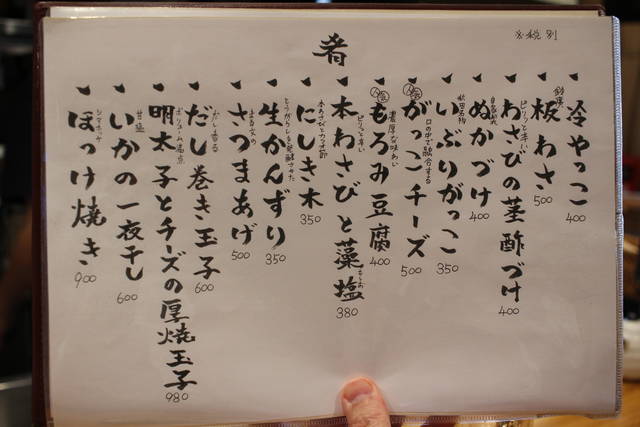 肴
※税別
冷やっこ 400
鈴廣
板わさ 500
ピリッと辛い
わさびの茎酢づけ 400
自家製
ぬかづけ 400
秋田名物
いぶりがっこ 350
口の中で融合する
がっこチーズ 500
濃厚な味わい
もろみ豆腐 400
ピリッと辛い
本わさびと藻塩 380
もしお
本わさびとカツオ節
にしき木 350
とうがらしを発酵させた
生かんずり 350
さつまあげ 500
だし香る
だし巻き玉子 600
ボリューム満点
明太子とチーズの厚焼玉子 980
甘塩
いかの一夜干し 600
シマホッケ
ほっけ焼き 900